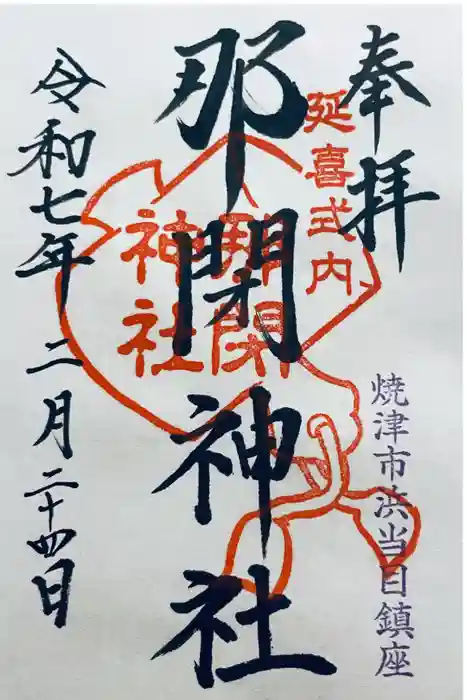 奉拝
延喜式内
焼津市浜当目鎮座
那閉神社
那閉
神社
令和七年二月二十四日